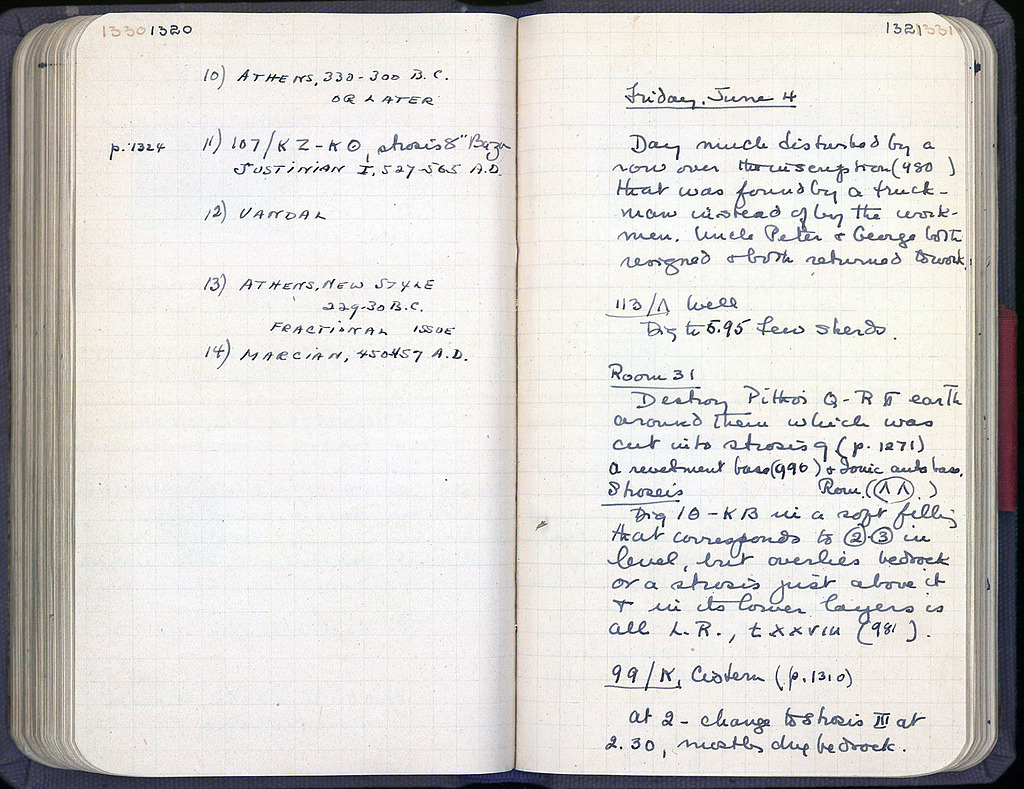 1330 1320
10) ATHENS, 330-300 B.C.
OR LATER
p. 1324 11) 107/KZ-KΘ, strosis 8" Byzan
JUSTINIAN I, 527-565 A.D.
12) VANDAL
13) ATHENS, NEW STYLE
229-30 B.C.
FRACTIONAL ISSUE
14) MARCIAN, 450-457 A.D.
1321 1331
Friday, June 4
Day much disturbed by a
row over the inscription (980)
that was found by a truck-
man instead of by the work-
men. Uncle Peter & George both
resigned & both returned to work.
113/Λ Well
Dig to 5.95 Few sherds.
Room 31
Destroy Pithoi Q-R & earth
around them which was
cut into strosis 9 (p. 1271)
a revetment base (990) & Ionic anta base.
Stroseis Rom. (ΛΛ.)
Dig 10-KB in a soft filling
that corresponds to 2-3 in
level, but overlies bedrock
or a strosis just above it
& in its lower layers is
all L.R., t XXVIII (981).
99/K, Cistern (p. 1310)
at 2 - change to Strosis III at
2.30, mostly dug bedrock.